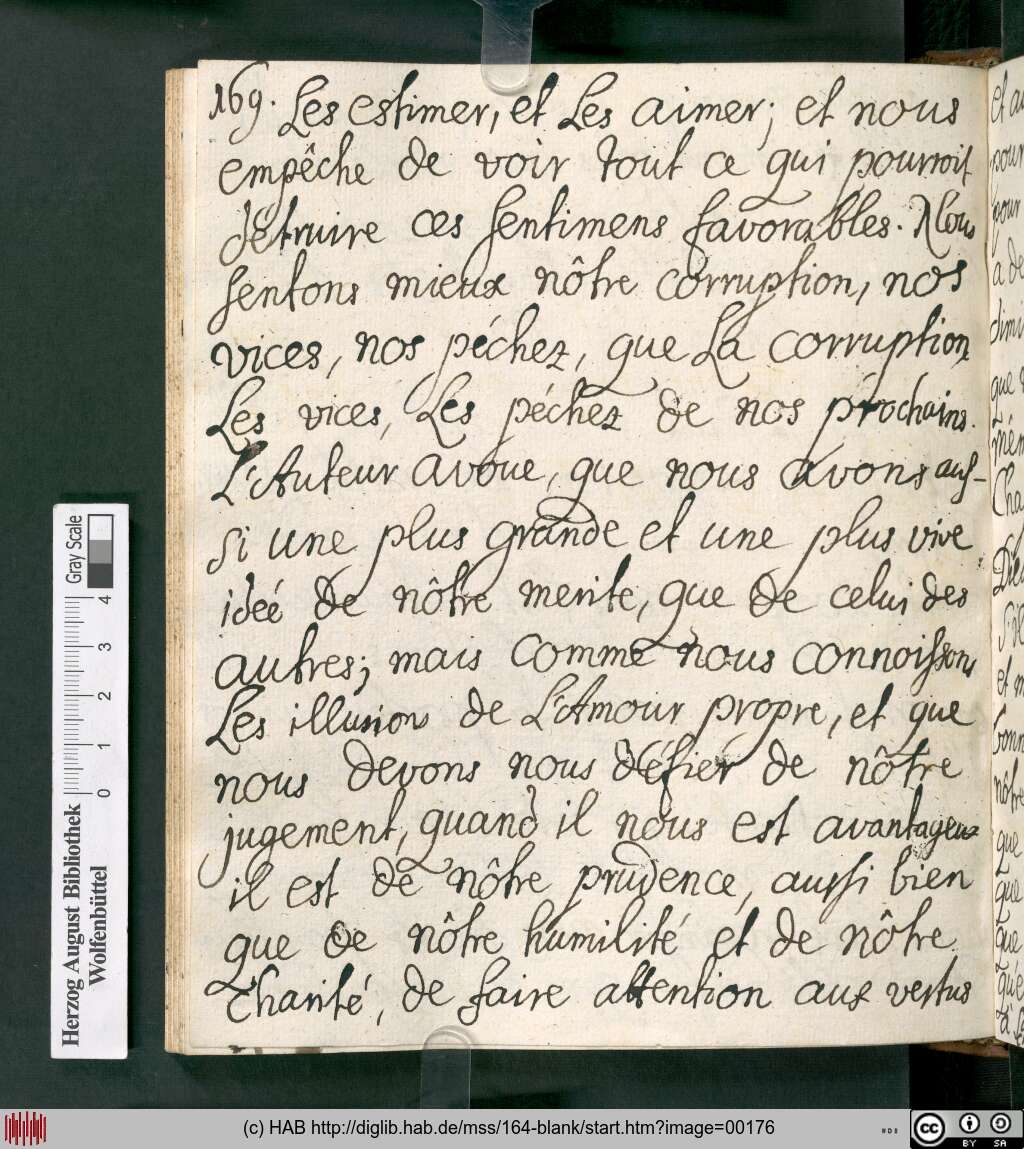 169. Les estimer, et Les aimer; et nous
empêche de voir tout ce qui pourroit
détruire ces sentimens favorables. Nous
sentons mieux nôtre corruption, nos
vices, nos péchez, que La corruption,
Les vices, Les péchez de nos prochains.
L'Auteur avoue, que nous avons aus-
si une plus grande et une plus vive
ideé de nôtre merite, que de celui des
autres; mais comme nous connoissons
Les illusions de L'Amour propre, et que
nous devons nous défier de nôtre
jugement, quand il nous est avantageux
il est de nôtre prudence, aussi bien
que de nôtre humilité et de nôtre
Charité, de faire attention aux vertus
Herzog August Bibliothek
Wolfenbüttel
Gray Scale
0 1 2 3 4
(c) HAB http://diglib.hab.de/mss/164-blank/start.htm?image=00176
cc BY SA